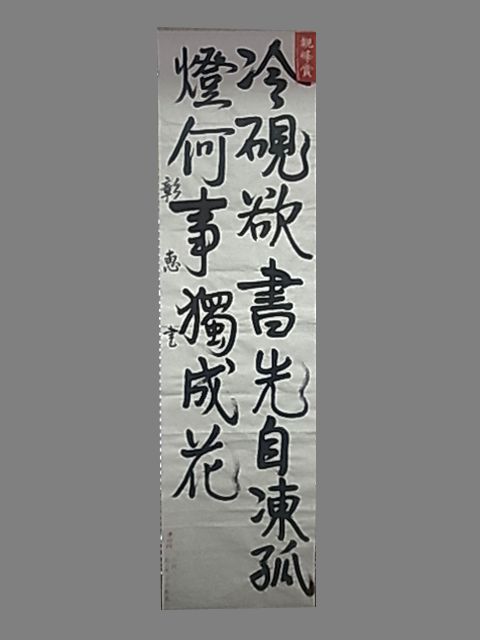 冷硯欲書先自凍孤
燈何事獨成花
彰惠書
親峰賞